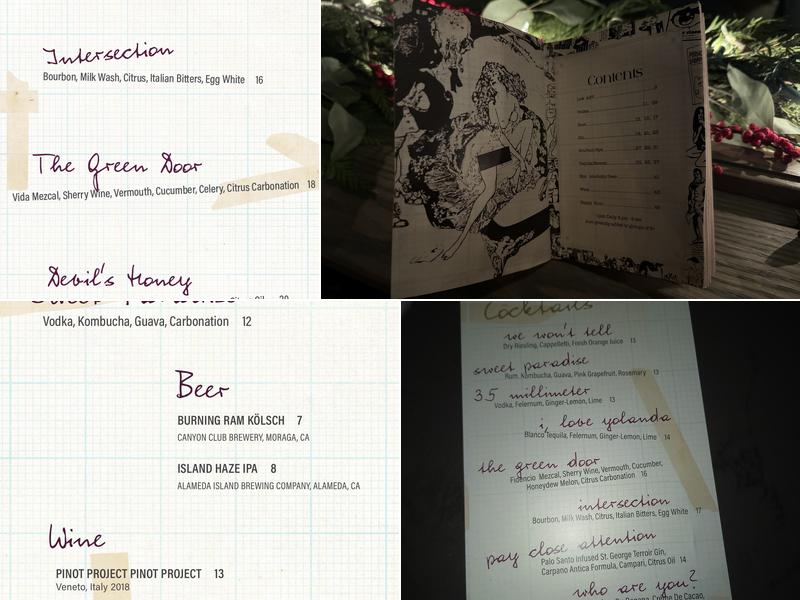 Intersection
Bourbon, Milk Wash, Citrus, Italian Bitters, Egg White 16
The Green Door
Vida Mezcal, Sherry Wine, Vermouth, Cucumber, Celery, Citrus Carbonation 18
Devil's Honey
Contents
Vodka, Kombucha, Guava, Carbonation 12
Beer
BURNING RAM KÖLSCH 7
CANYON CLUB BREWERY, MORAGA, CA
ISLAND HAZE IPA 8
ALAMEDA ISLAND BREWING COMPANY, ALAMEDA, CA
Wine
PINOT PROJECT PINOT PROJECT 13
Veneto, Italy 2018
Cocktails
we won't tell
Dry Riesling, Cappelletti, Fresh Orange Juice 13
sweet paradise
Rum, Kombucha, Guava, Pink Grapefruit, Rosemary 13
35 millimeter
Vodka, Felernum, Ginger-Lemon, Lime 13
i, love yolanda
Blanco Tequila, Felernum, Ginger-Lemon, Lime 14
the green door
Fidencio Mezcal, Sherry Wine, Vermouth, Cucumber,
Honeydew Melon, Citrus Carbonation 16
intersection
Bourbon, Milk Wash, Citrus, Italian Bitters, Egg White 17
pay close attention
Palo Santo Infused St. George Terroir Gin,
Carpano Antica Formula, Campari, Citrus Oil 14
who are you?
Banana, Crème De Cacao,